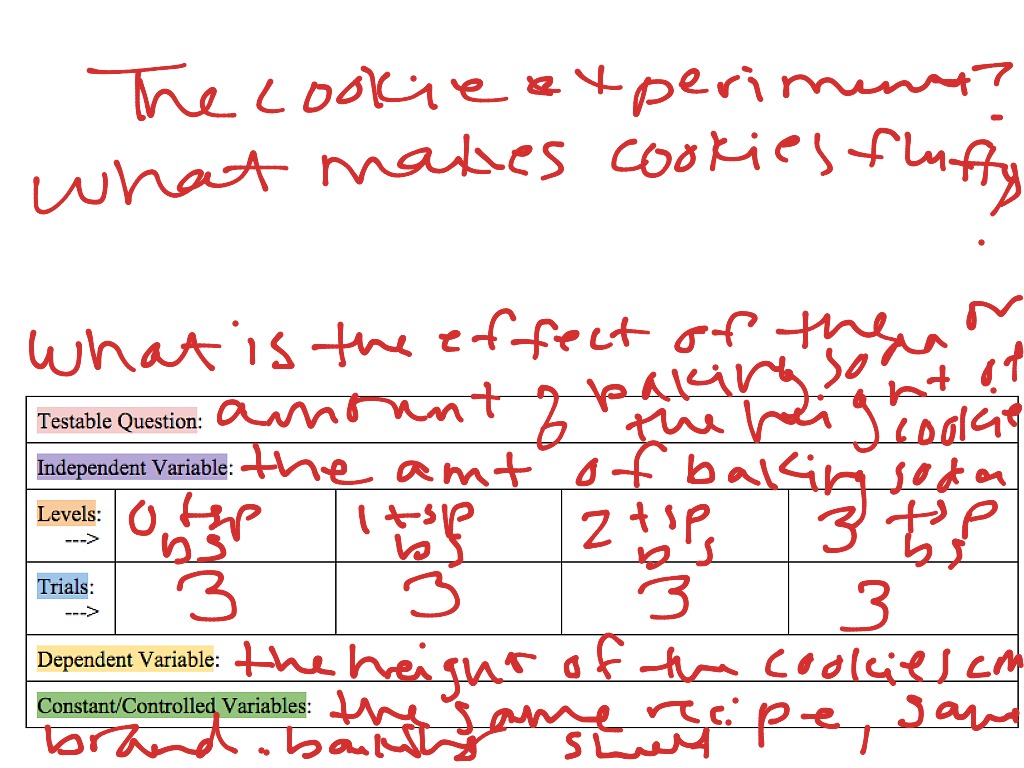 The cookie experiment?
what makes cookies fluffy?
what is the effect of the
Testable Question: amount of baking soda on the height of cookie
Independent Variable: the amt of baking soda
Levels: 0 tsp bs 1 tsp bs 2 tsp bs 3 tsp bs
--->
Trials: 3 3 3 3
--->
Dependent Variable: the height of the cookies cm
Constant/Controlled Variables: the same recipe, same
brand. baking